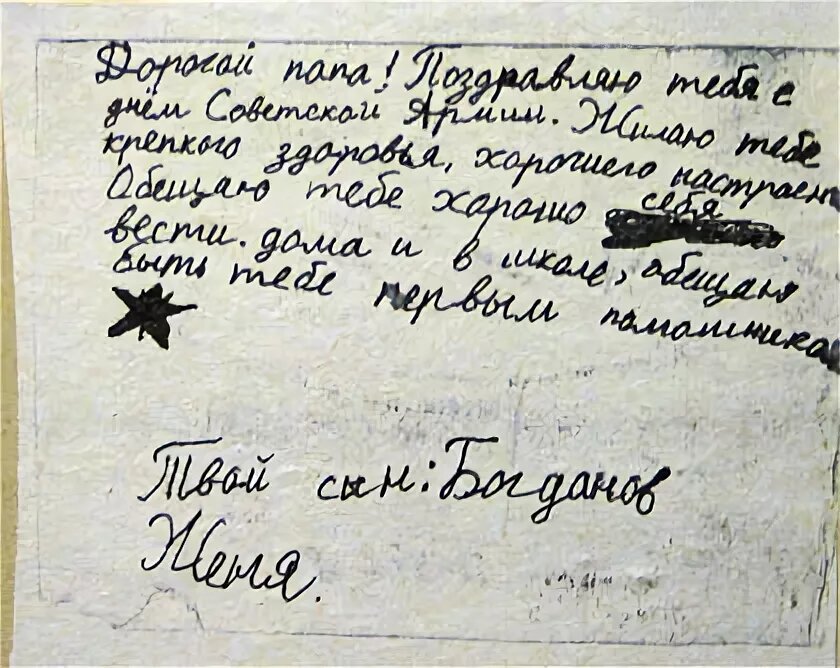 Дорогой папа! Поздравляю тебя с
днём Советской Армии. Жилаю тебе
крепкого здоровья, хорошего настроен
Обещаю тебе хорошо себя
вести. дома и в школе, обещаю
быть тебе первым помошнико
Твой сын: Богданов
Женя.